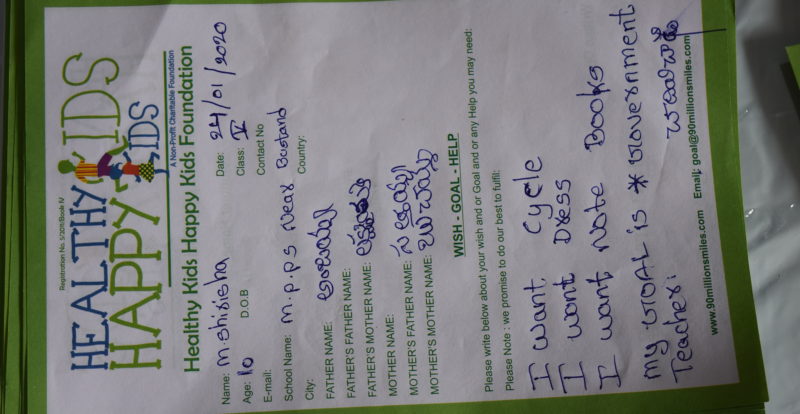 Registration No. 5/2011/Book IV
HEALTHY KIDS
HAPPY KIDS
A Non-Profit Charitable Foundation
Healthy Kids Happy Kids Foundation
Name: m.shirisha Date: 24/01/2020
Age: 10 D.O.B Class: V
E-mail: Contact No
School Name: m.p.p.s near Bustand
City: Country:
FATHER NAME:
FATHER'S FATHER NAME:
FATHER'S MOTHER NAME:
MOTHER NAME:
MOTHER'S FATHER NAME:
MOTHER'S MOTHER NAME:
WISH - GOAL - HELP
Please write below about your wish and or Goal and or any Help you may need:
Please Note : we promise to do our best to fulfil:
I want Cycle
I want Dress
I want Note Books
my GOAL is * Government
Teacher:
www.90millionsmiles.com Email: goal@90millionsmiles.com